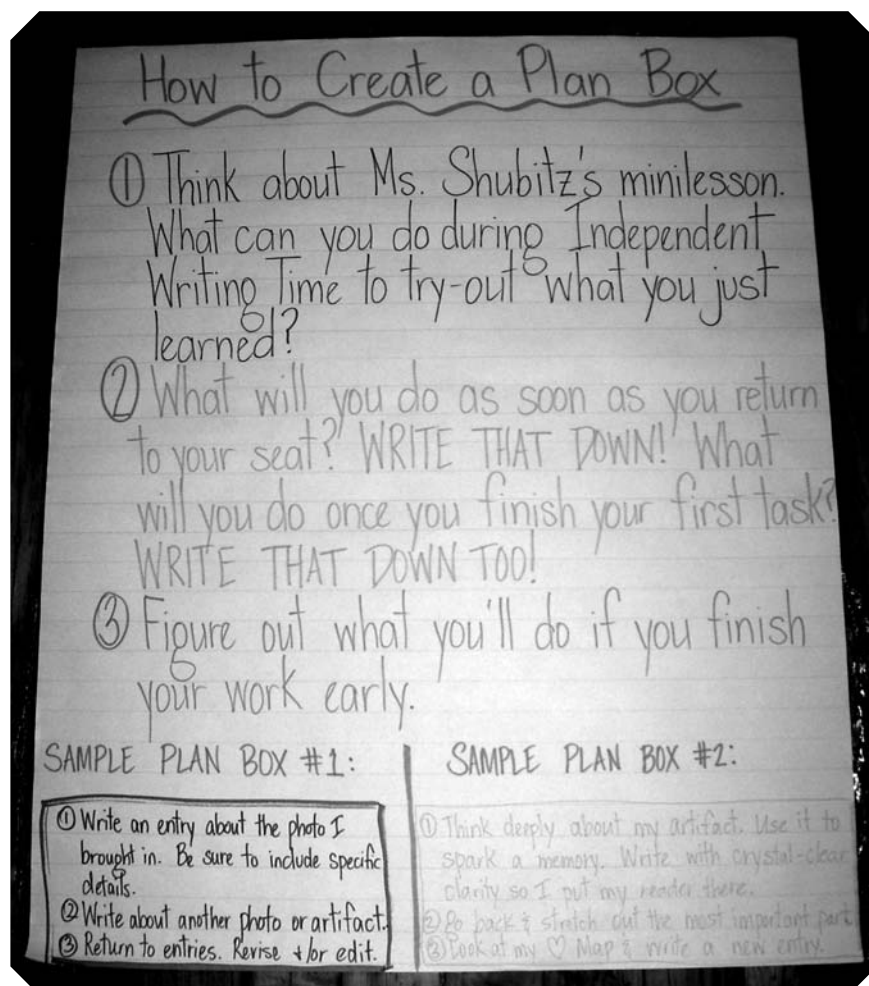 How to Create a Plan Box
① Think about Ms. Shubitz's minilesson.
What can you do during Independent
Writing Time to try-out what you just
learned?
② What will you do as soon as you return
to your seat? WRITE THAT DOWN! What
will you do once you finish your first task?
WRITE THAT DOWN TOO!
③ Figure out what you'll do if you finish
your work early.
SAMPLE PLAN BOX #1:
① Write an entry about the photo I
brought in. Be sure to include specific
details.
② Write about another photo or artifact.
③ Return to entries. Revise +/or edit.
SAMPLE PLAN BOX #2:
① Think deeply about my artifact. Use it to
spark a memory. Write with crystal-clear
clarity so I put my reader there.
② Go back & stretch out the most important part
③ Look at my ♡ Map & write a new entry.